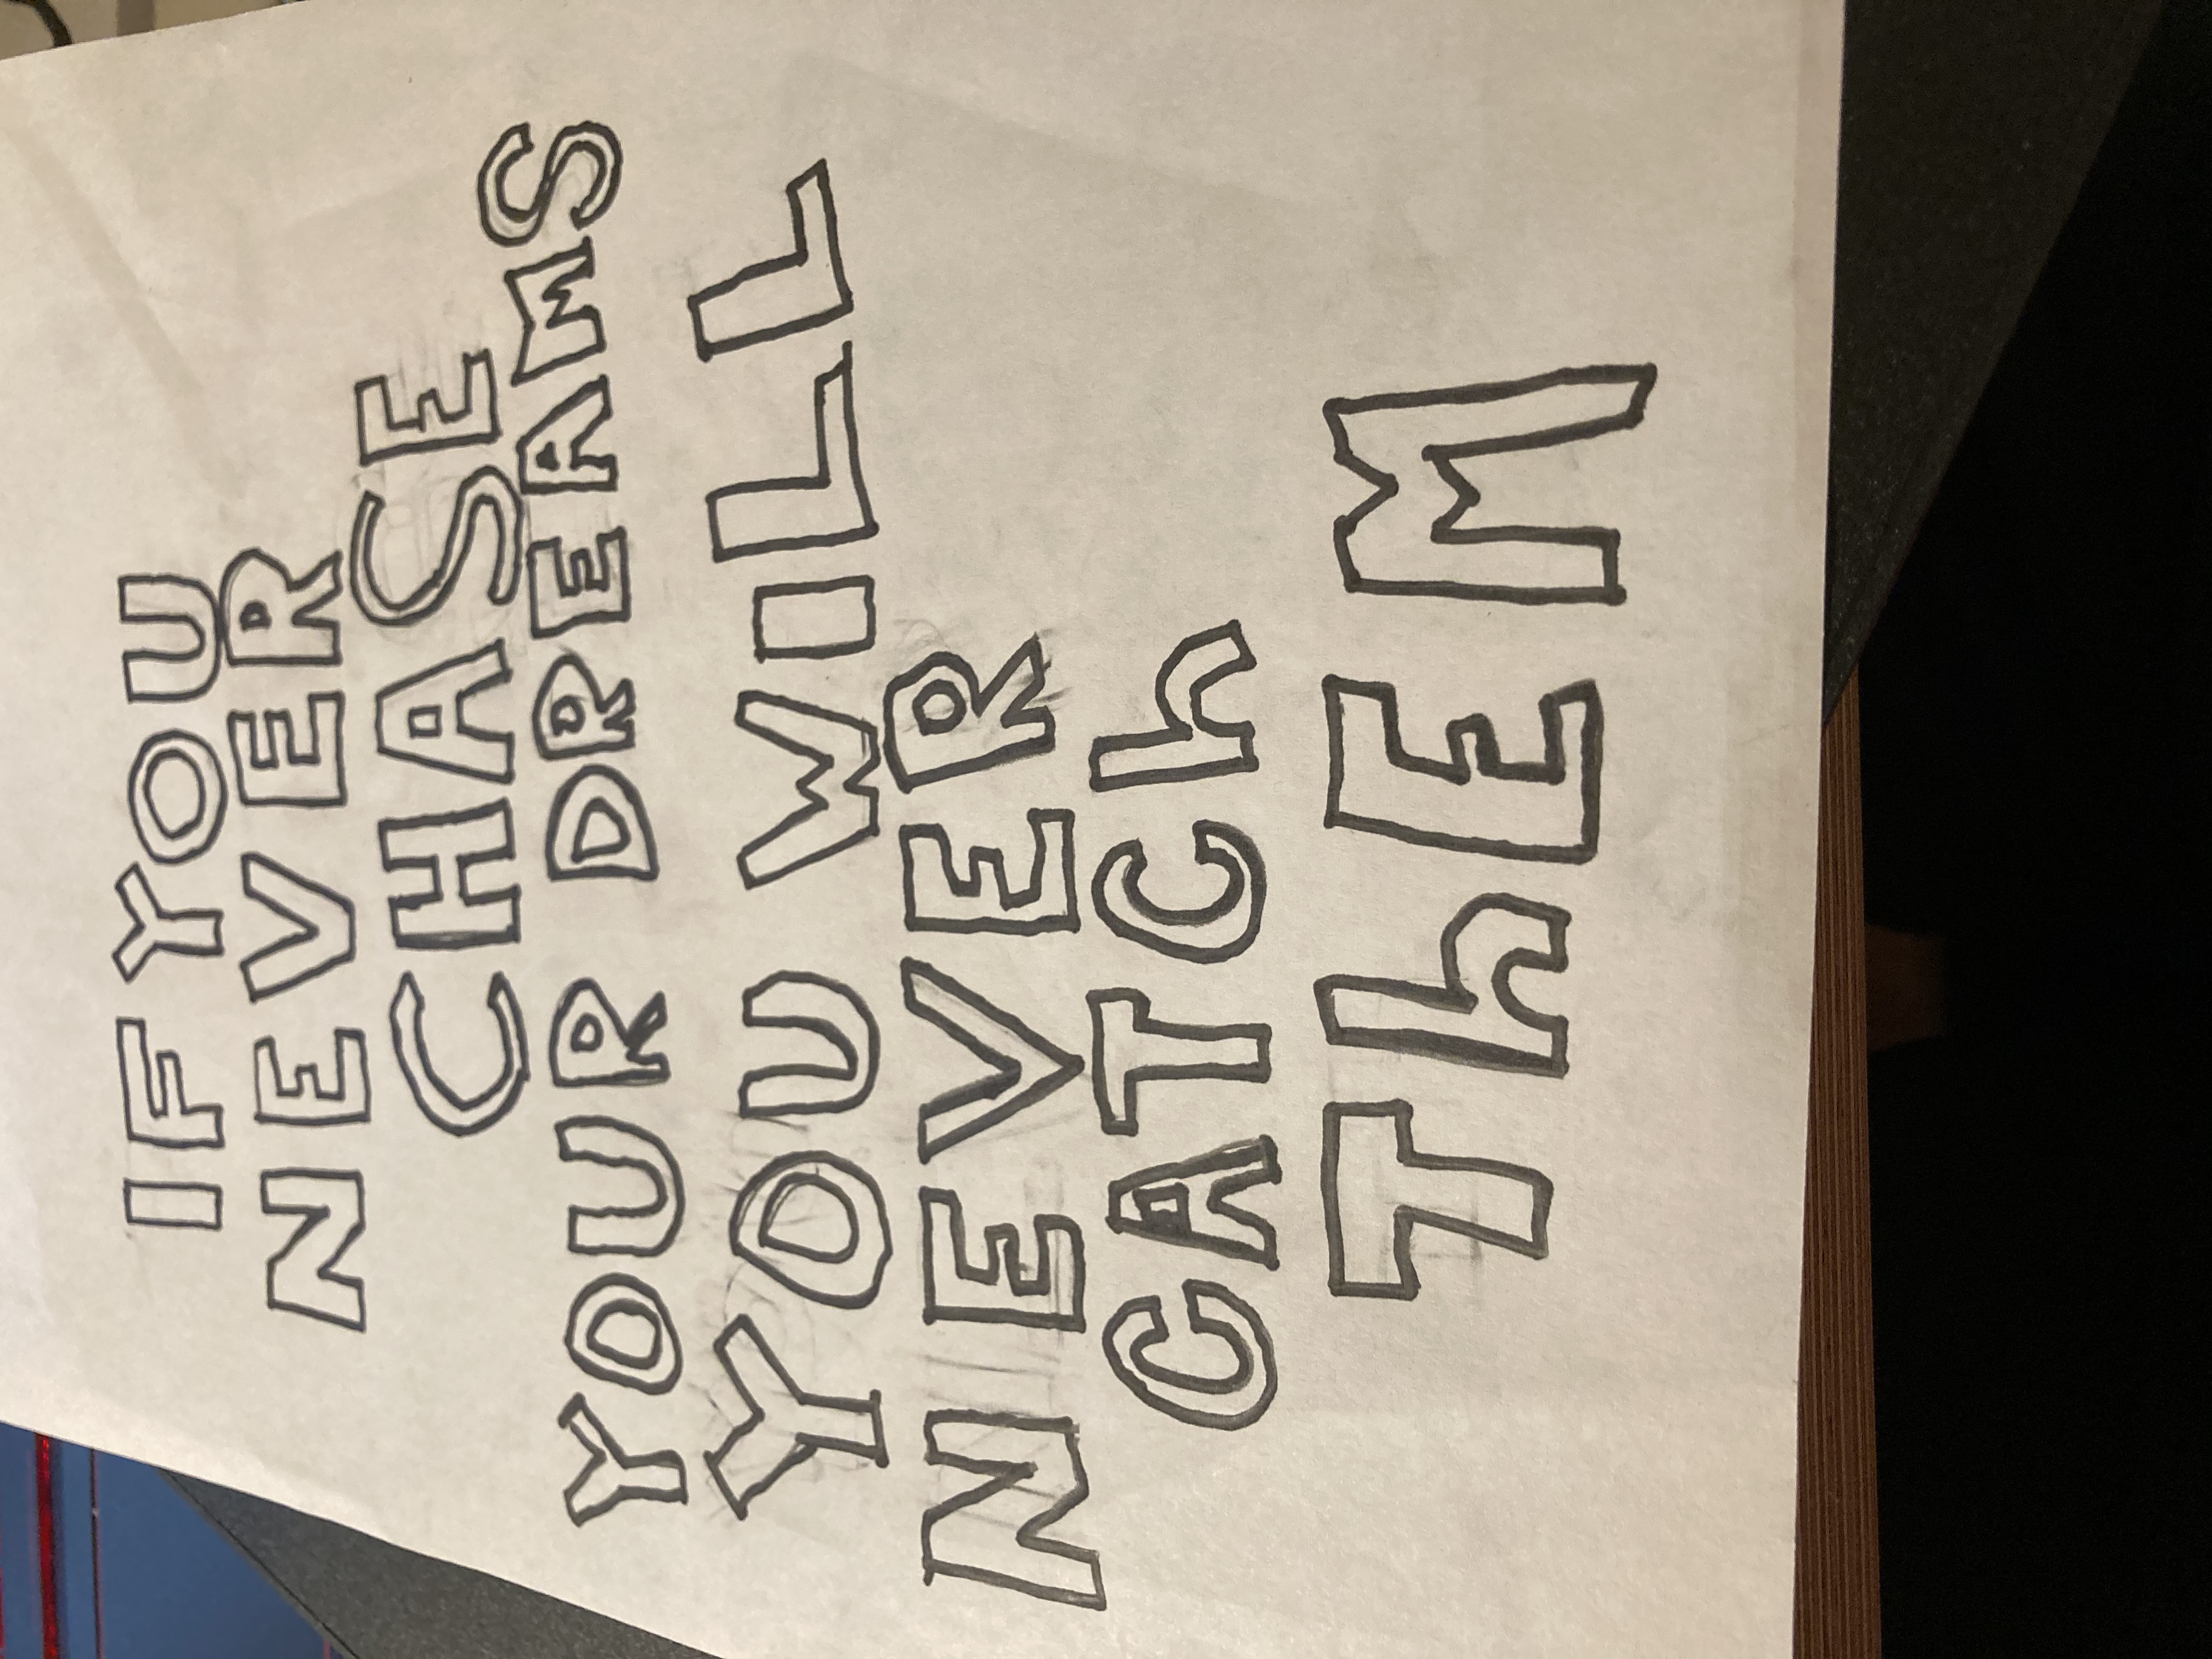 IF YOU
NEVER
CHASE
YOUR DREAMS
YOU WILL
NEVER
CATCh
ThEM